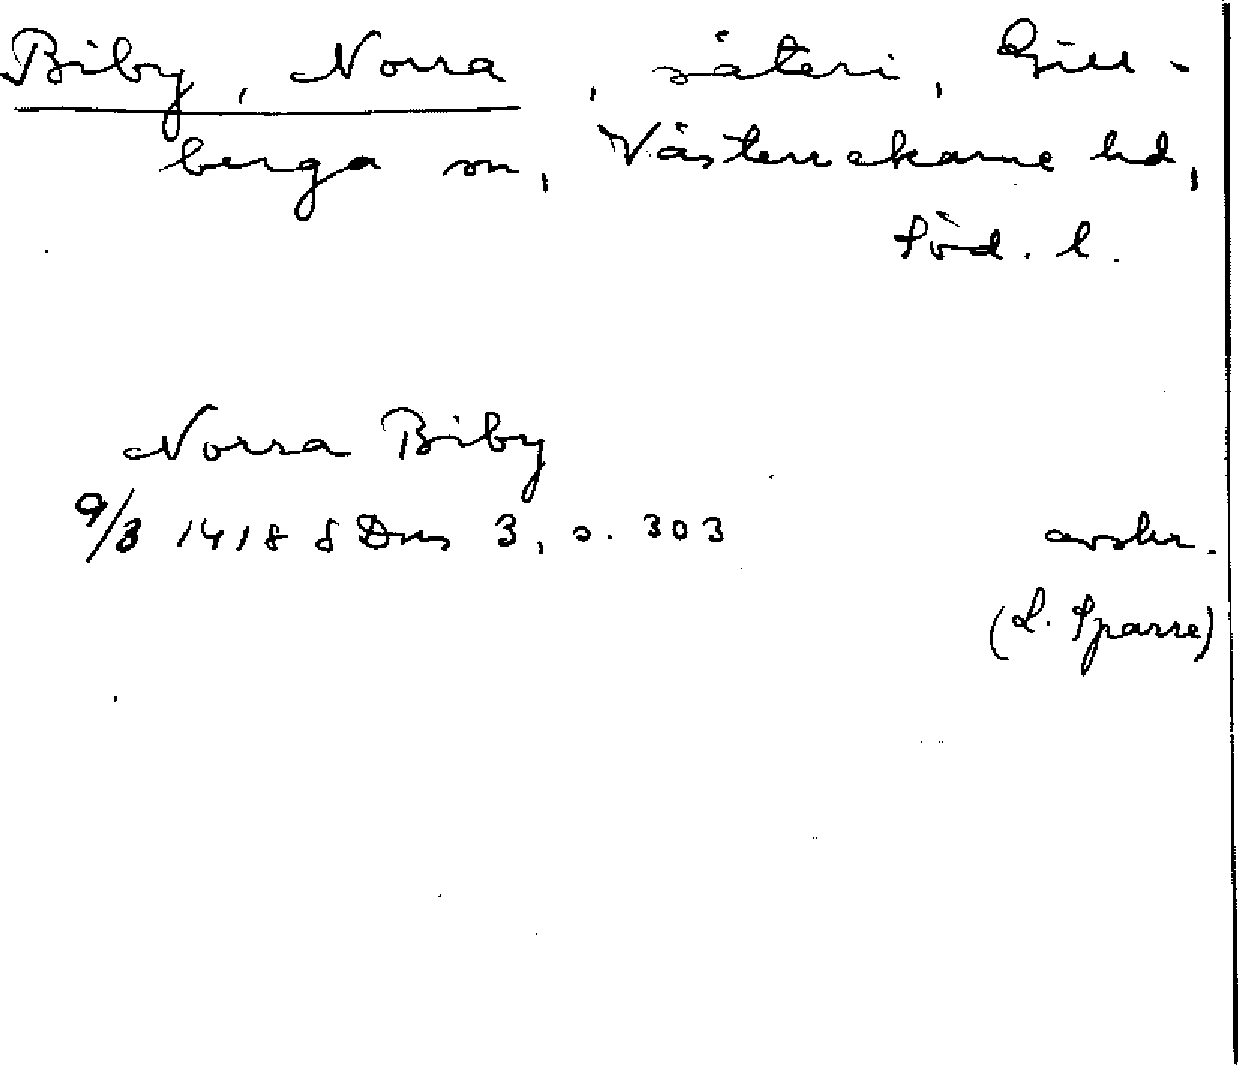 Biby, Norra, säteri, Gill-
berga sn, Västerrekarne hd,
Söd. l.
Norra Biby
9/3 1418 8 Dns 3, s. 303 avskr.
(L. Sparre)